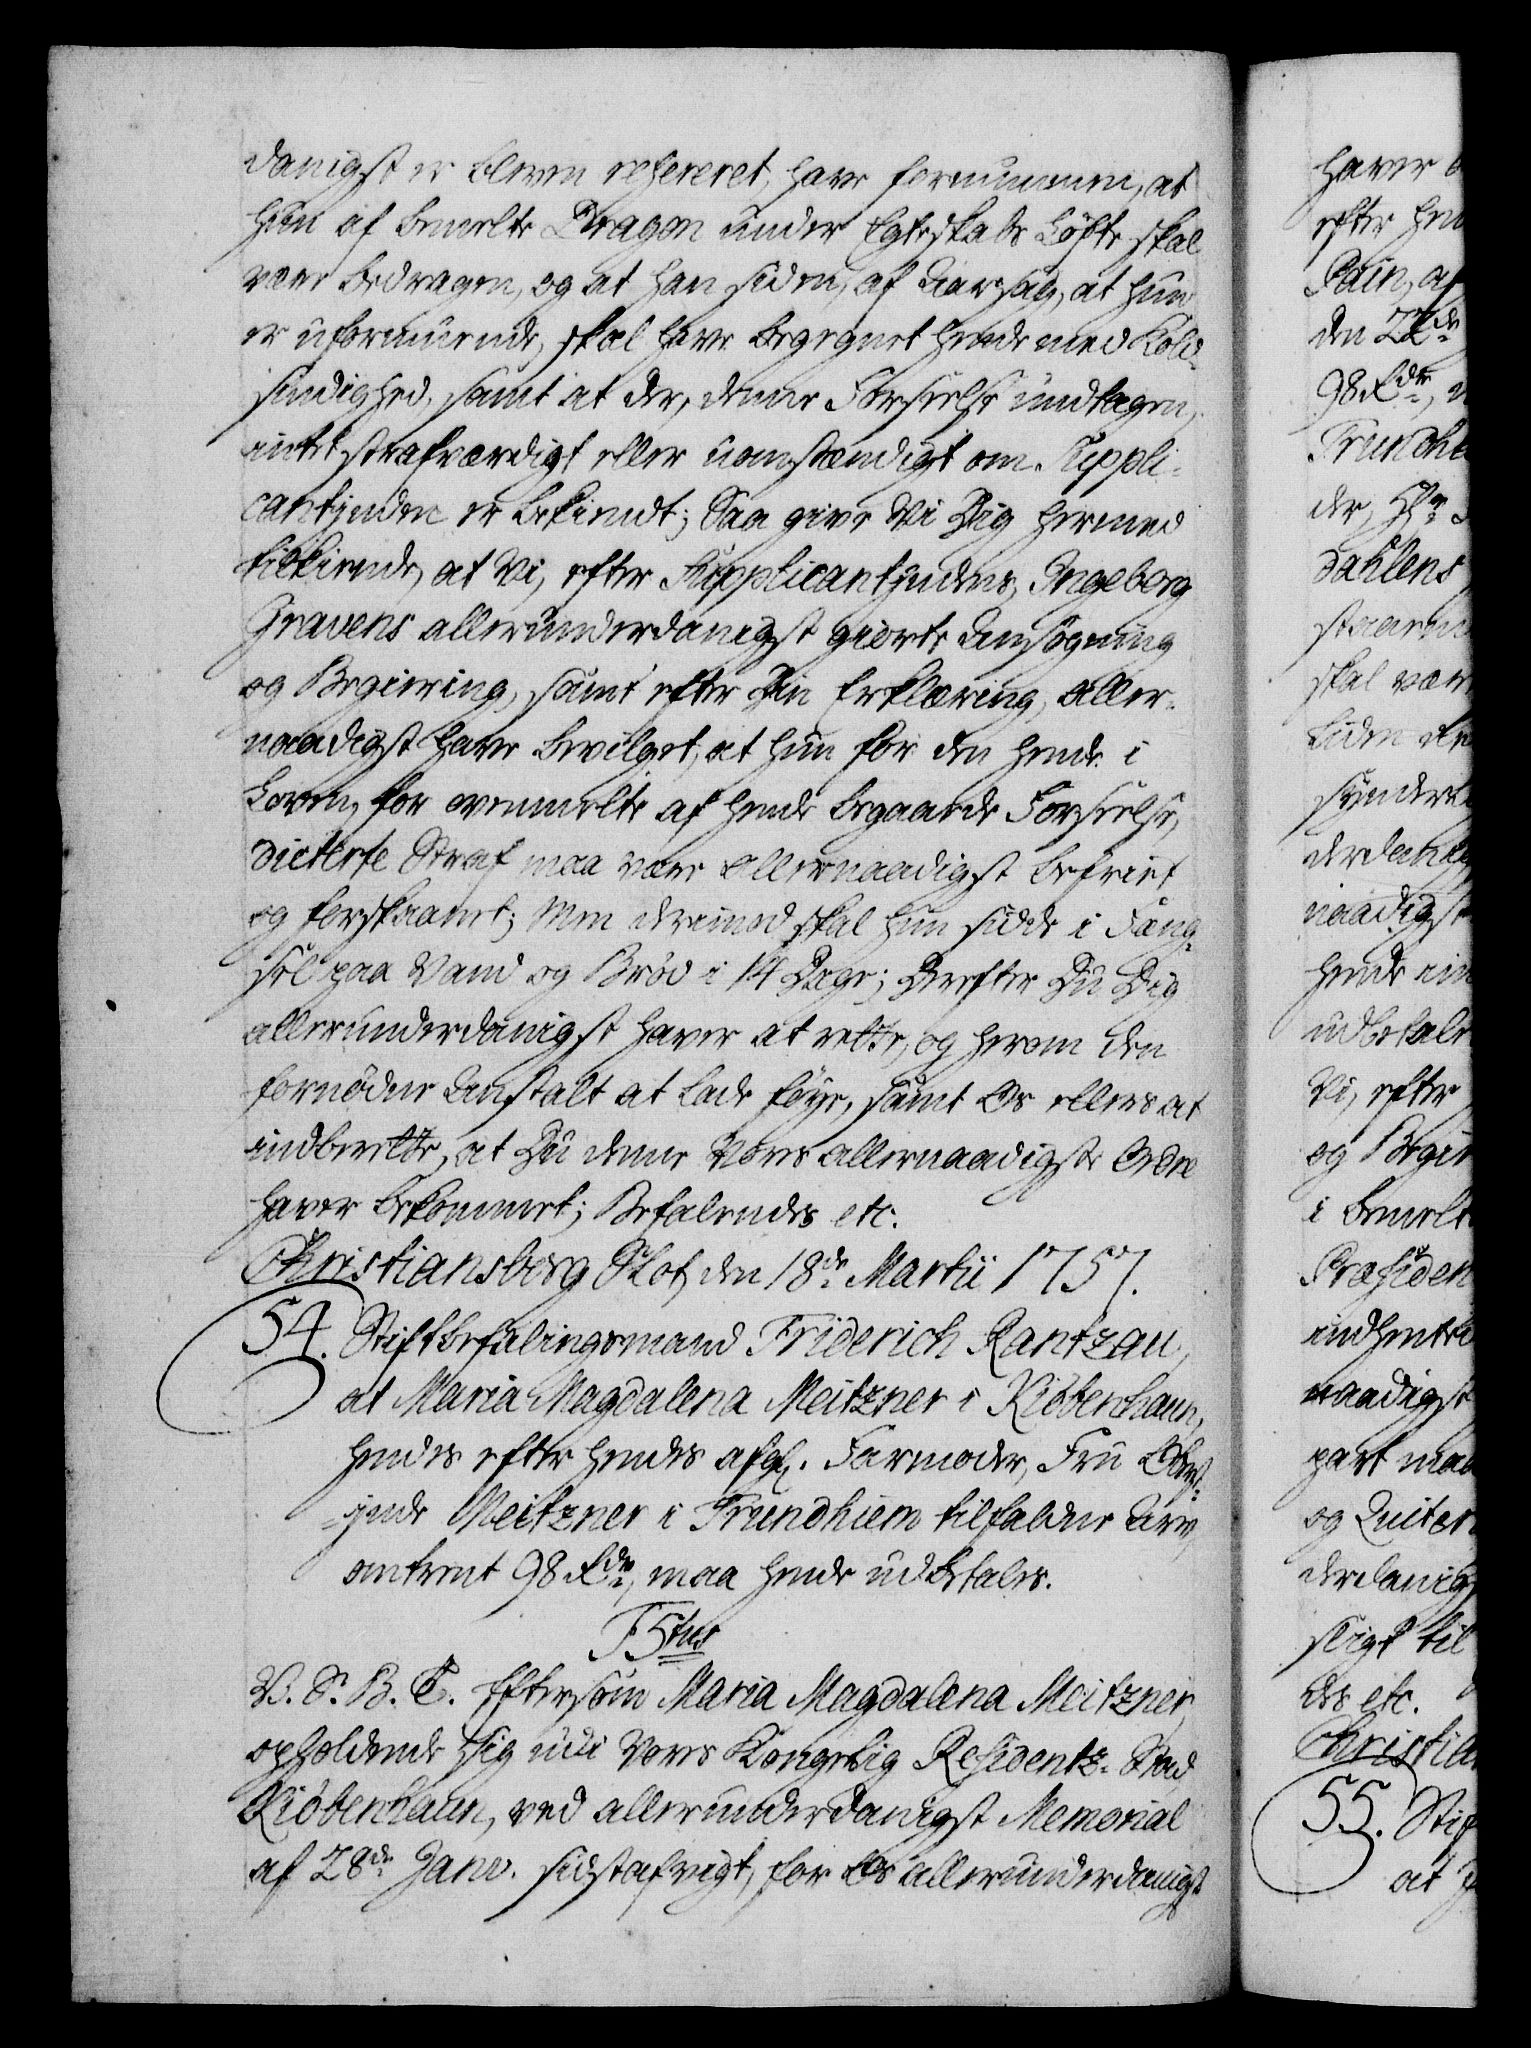 danigst er bleven refereret, have fornummen, at
hun af bemelte Dragon under Egteskabs Løfte skal
være bedragen, og at han siden, af Aarsag, at hun
er uformuende, skal have begegnet hende med Kold-
sindighed, samt at der, denne Forseelse undtagen,
intet strafværdigt eller uanstændigt om Suppli-
cantinden er bekiendt; Saa give Vi Dig hermed
tilkiende, at Vi, efter Supplicantindens, Ingeborg
Gravens allerunderdanigst giorte Ansøgning
og Begiering, samt efter Din Erklæring, aller-
naadigst have bevilget, at hun for den hende i
Loven, for ovenmelte af hende begaaede Forseelse,
dicterte Straf maa være allernaadigst befriet
og forskaanet; Men derimod skal hun sidde i Fæng-
sel paa Vand og Brød i 14 Dage; Derefter Du Dig
allerunderdanigst haver at rette, og herom den
fornødne Anstalt at lade føye, samt Os ellers at
indberette, at Du denne Vores allernaadigste Ordre
haver bekommet; Befalendes etc.
Christiansborg Slot den 18de Martii 1757.
54. Stiftbefalingsmand Friderich Rantzau,
at Maria Magdalena Meitzner i Kiøbenhaun,
hendes efter hendes afg. Farmoder, Fru Oberst-
inde Meitzner i Trundhiem tilfaldne Arv,
omtrent 98 Rdr, maa hende udbetales.
F5tus
V. S. B. T. Eftersom Maria Magdalena Meitzner,
opholdende sig udi Vores Kongelig Residentz-Stad
Kiøbenhaun, ved allerunderdanigst Memorial
af 28de Janv. sidstafvigt, for Os allerunderdanigst
haver
efter hen
den 22de
98 Rdr,
Trundhi
der,
dahlens
skal vær
naadigst
hende
udbetale
Vi, efter
og Begie
i bemelt
Præsiden
indhente
naadigst
part maa
og
derdanig
til
des etc.
Christia
55. Stif
at